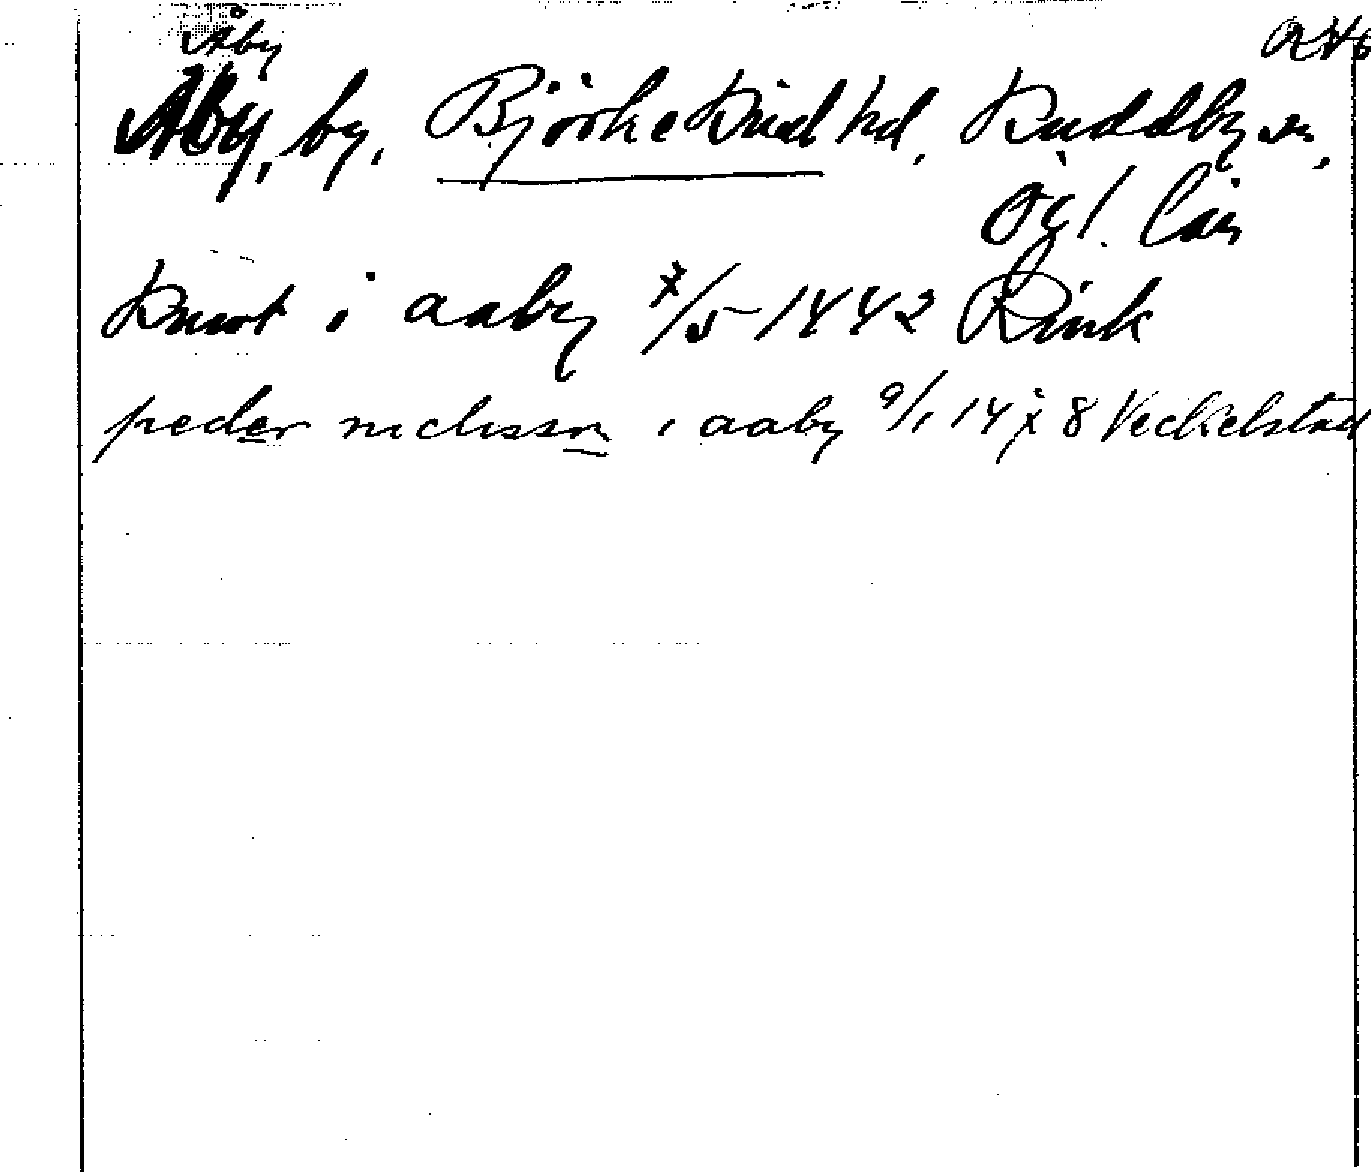 Åby
Åby, by, Björkekind hd, Kuddby sn,
Ög l. län
Knwt i aaby 7/5 1442 Rink
peder niclisson i aaby 9/1 1478 Veckelstad